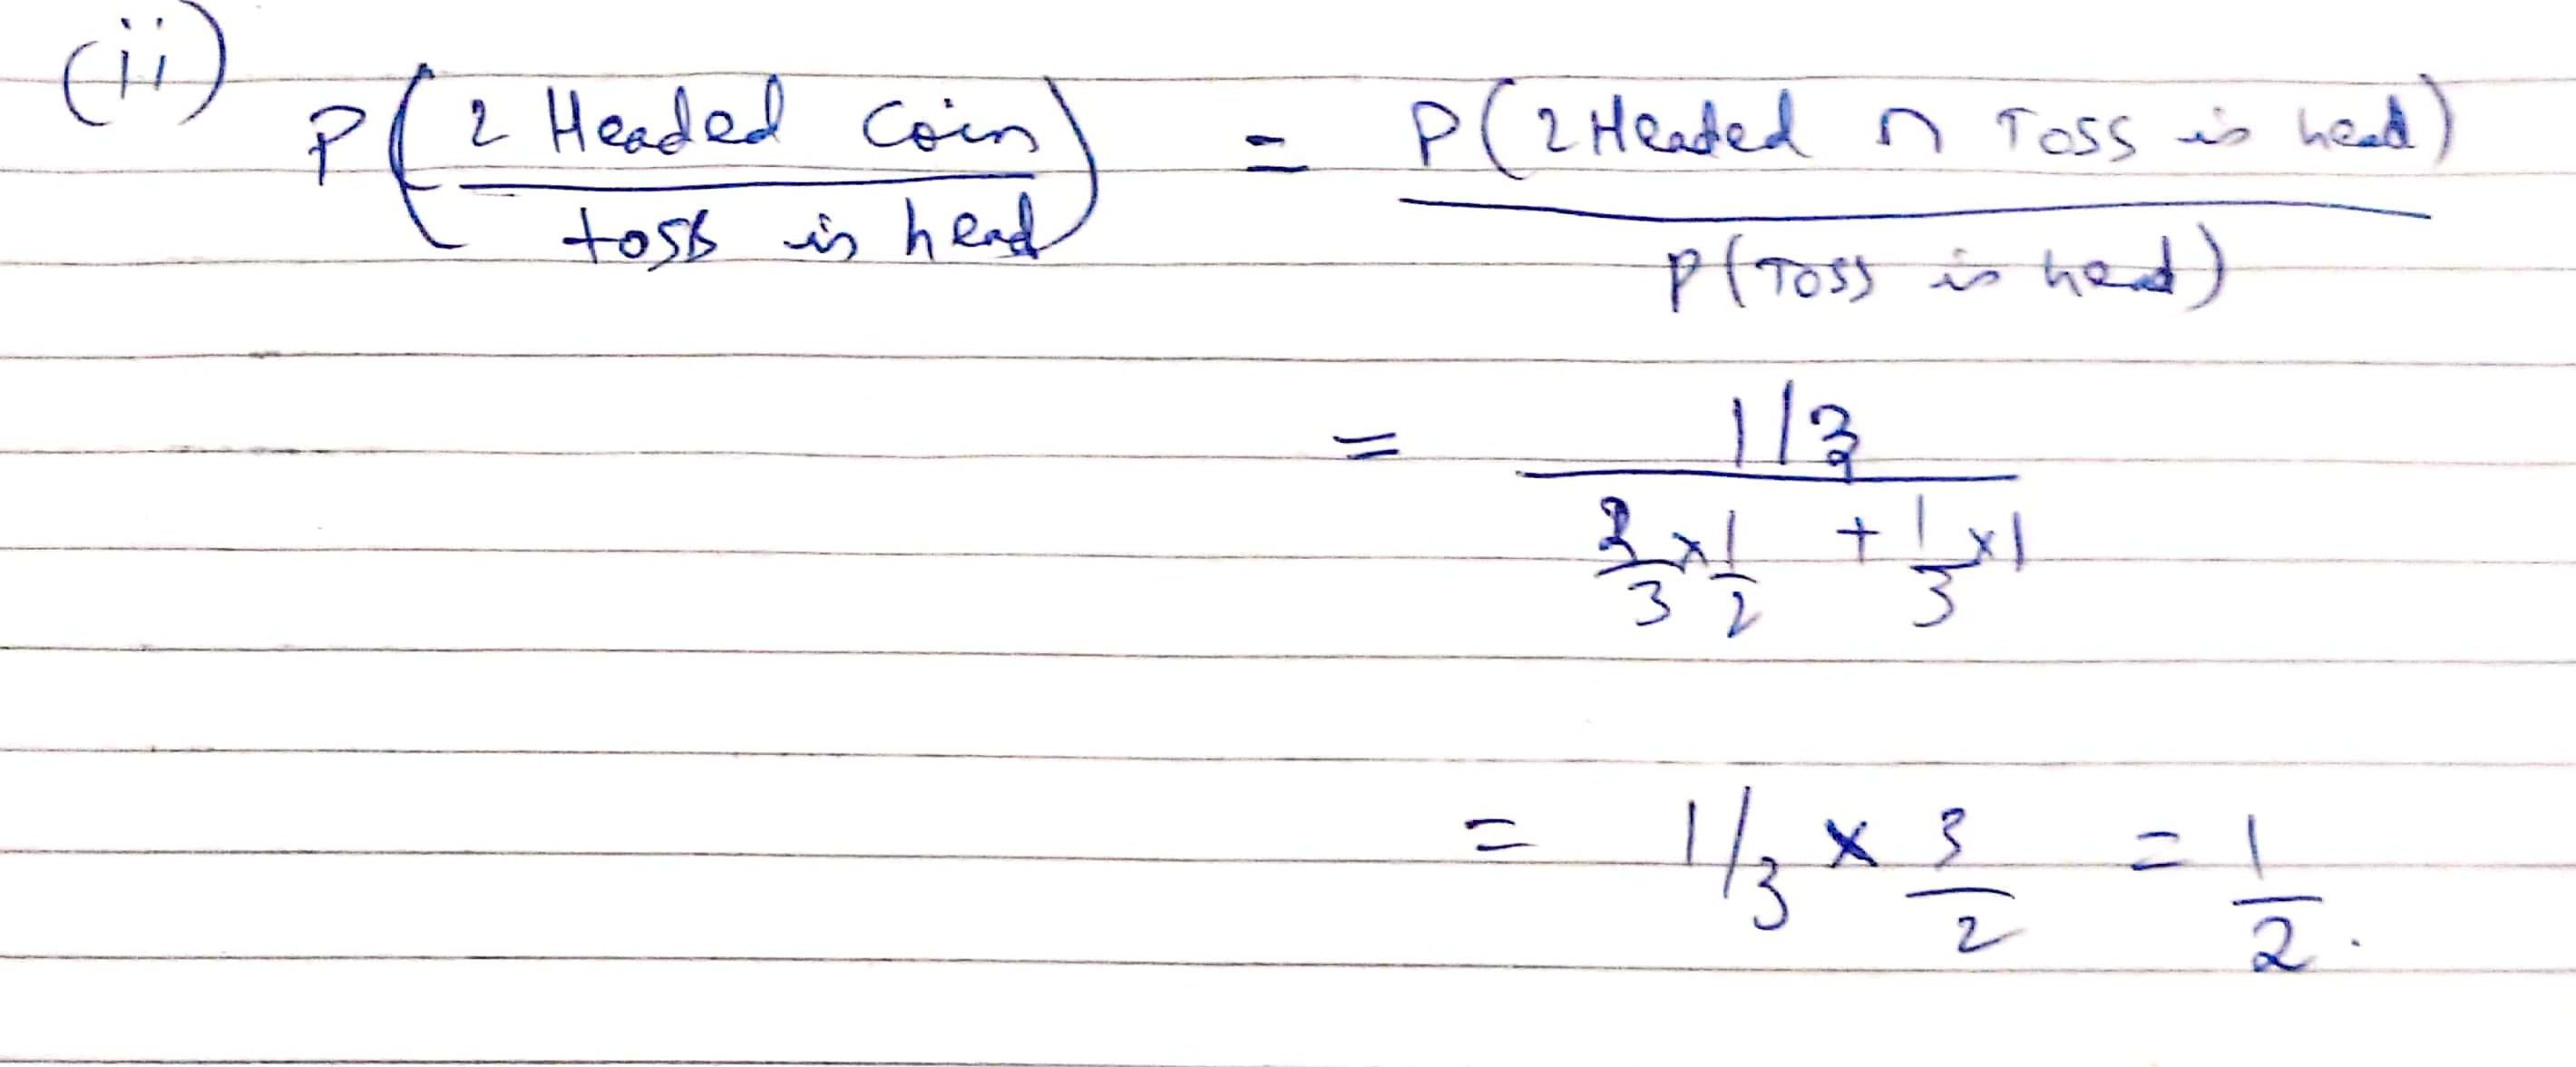 (ii)
P(2 Headed Coin / toss is head) = P(2 Headed ∩ Toss is head) / P(Toss is head)
= 1/3 / (2/3 × 1/2 + 1/3 × 1)
= 1/3 × 3/2 = 1/2.